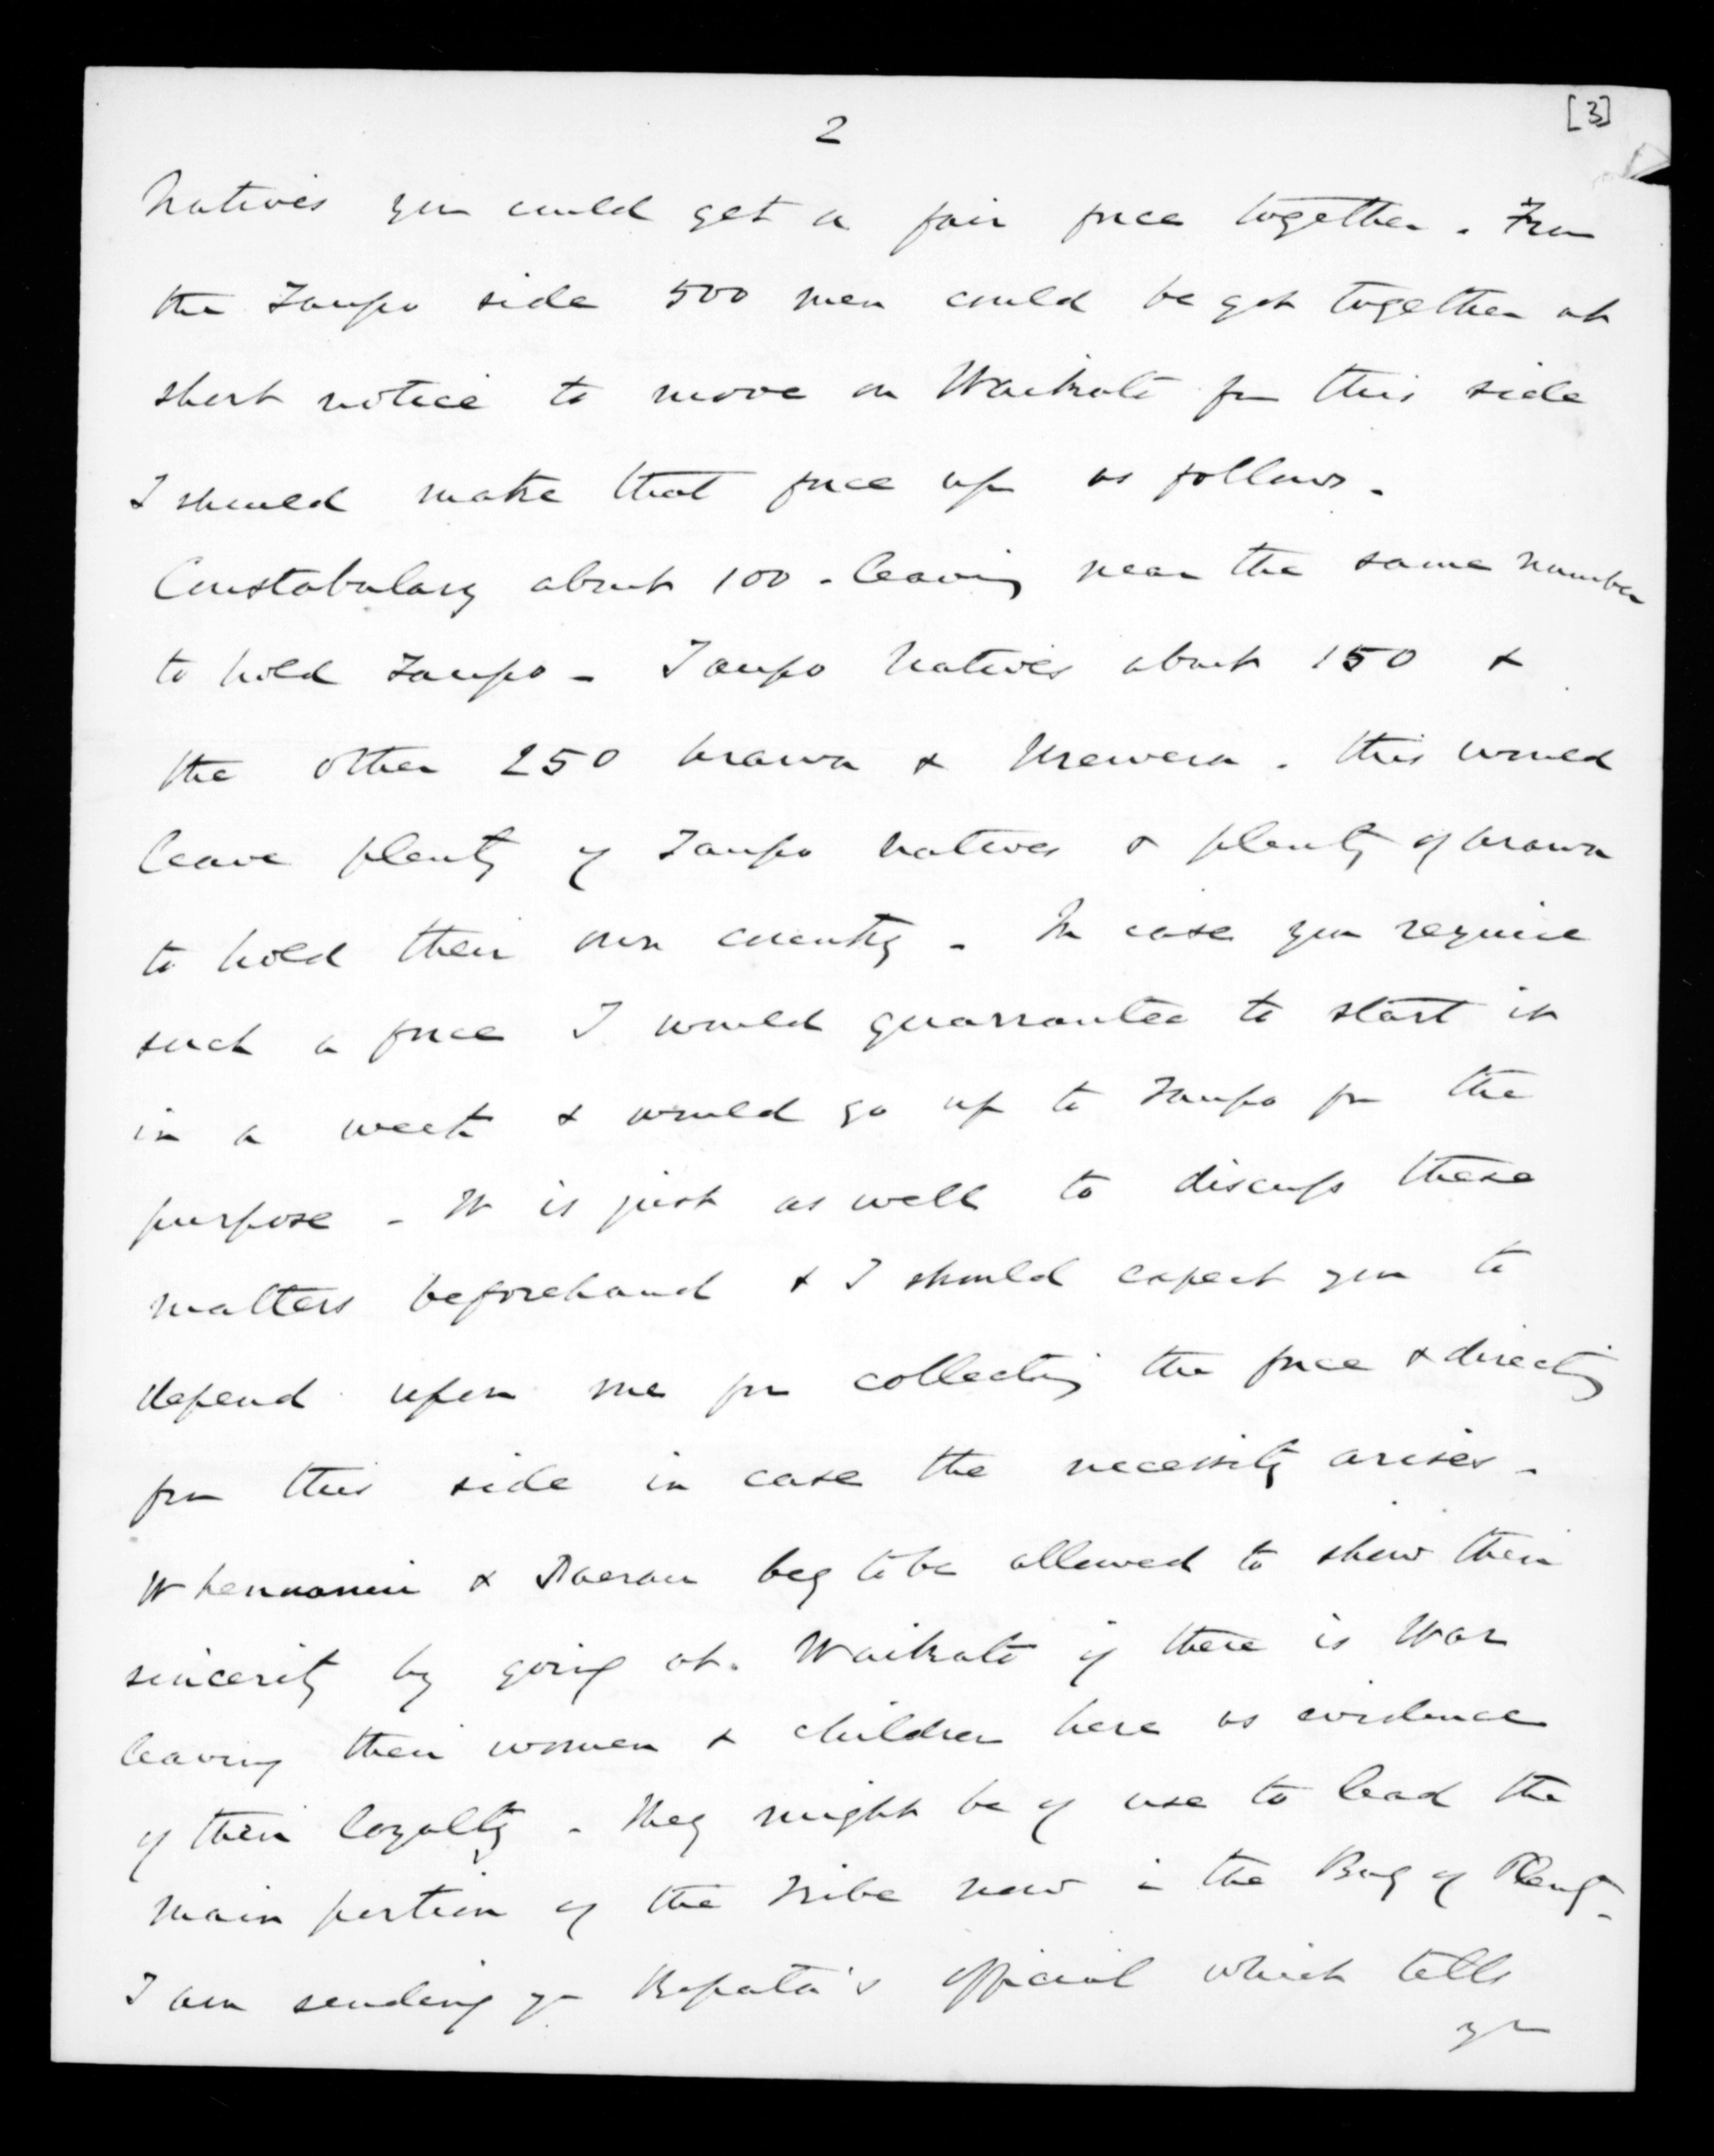 2
[3]
Natives you could get a fair force together. From
the Taupo side 500 men could be got together at
short notice to move on Waikato from this side
I should make that force up as follows.
Constabulary about 100 - leaving near the same number
to hold Taupo - Taupo Natives about 150 &
the other 250 Arawa & Urewera. this would
leave plenty of Taupo Natives & plenty of Arawa
to hold their own country - In case you require
such a force I would guarrantee to start it
in a week & would go up to Taupo for the
purpose - It is just as well to discuss these
matters beforehand & I should expect you to
depend upon me for collecting the force & directing
from this side in case the necessity arises -
Whenuanui & Paerau beg to be allowed to show their
sincerity by going at Waikato if there is War
leaving their women & children here as evidence
of their loyalty - They might be of use to lead the
main portion of the Tribe now in the Bay of Plenty -
I am sending you Ropata's official which tells
you